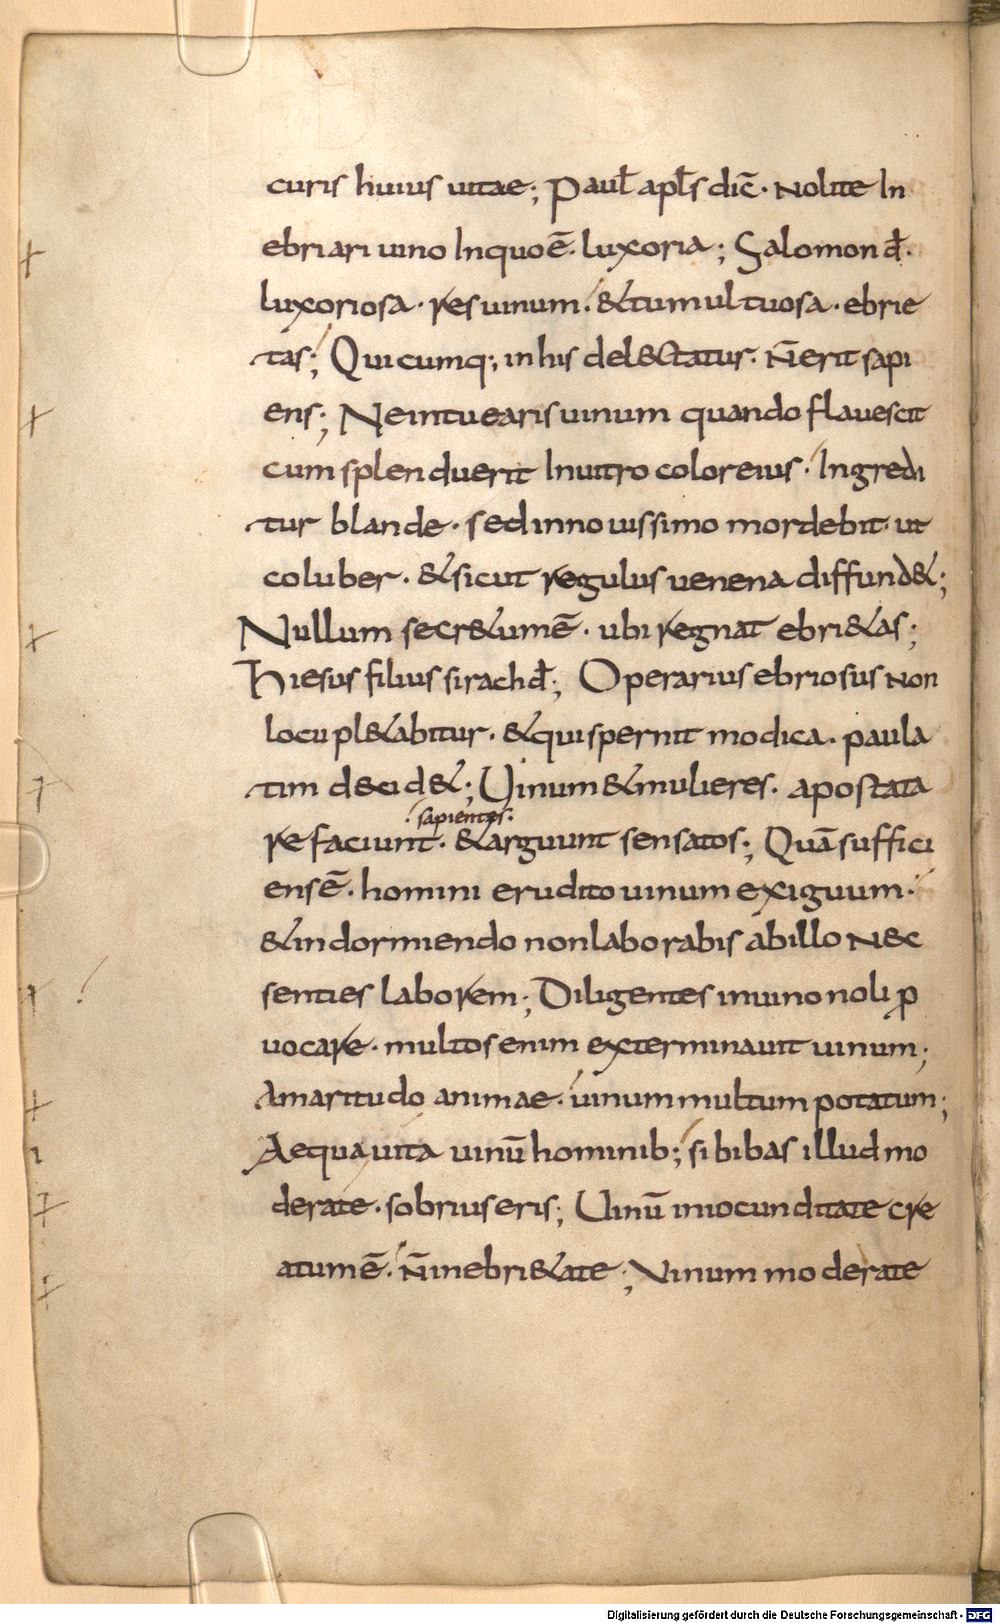 curis huius uitae; Paul̄ apl̄s dic̄· Nolite In
ebriari uino Inquo ē· luxoria; Salomon d̄·
luxoriosa· res uinum· & tumultuosa· ebrie
tas; Quicumq; in his del&tatur· N̄ erit sapi
ens; Ne intuearis uinum quando flauescit
cum splenduerit In uitro color eius· Ingredi
tur blande· sed in nouissimo mordebit· ut
coluber· & sicut regulus uenena diffund&;
Nullum secr&um ē· ubi regnat ebri&as;
Hiesus filius sirach d̄; Operarius ebriosus Non
locupl&abitur· & qui spernit modica· paula
tim decid&; Uinum & mulieres· apostata
·sapientes·
re faciunt· & arguunt sensatos; Quā suffici
ens ē· homini erudito uinum exiguum·
& in dormiendo non laborabis ab illo N&c
senties laborem; Diligentes in uino noli p̱
uocare· multos enim exterminauit uinum;
Amaritudo animae· uinum multum potatum;
Aequa uita uinū hominib; si bibas illud mo
derate· sobrius eris; Uinū in iocunditate cre
atum ē· N̄ in ebri&ate; Vinum moderate
Digitalisierung gefördert durch die Deutsche Forschungsgemeinschaft - DFG